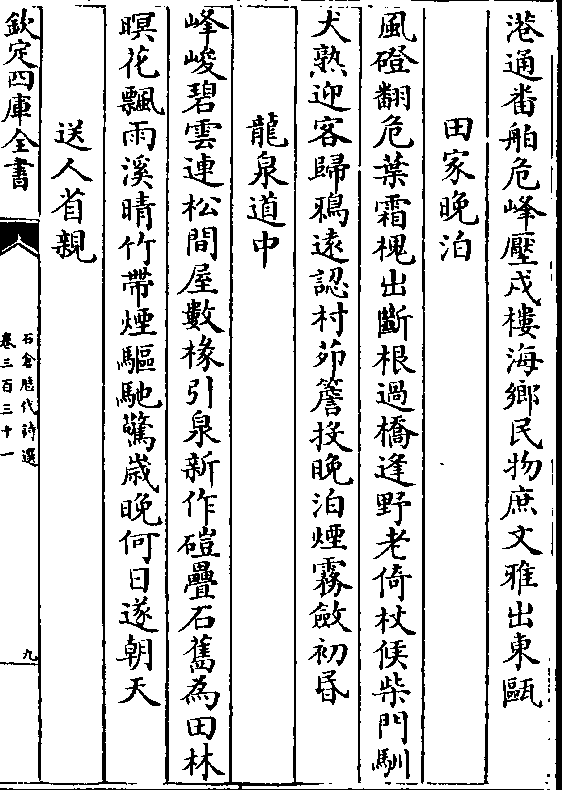 港通畨舶危峰壓戍樓海鄉民物庶文雅出東甌
田家晚泊
風磴翻危葉霜槐出斷根過橋逢野老倚杖候柴門馴
犬熟迎客歸鴉遠認村茆簷投晚泊煙霧斂初昏
龍泉道中
峰峻碧雲連松間屋數椽引泉新作磑疊石舊為田林
暝花飄雨溪晴竹帶煙驅馳驚嵗晚何日遂朝天
送人省親
欽定四庫全書
石倉歴代詩選
卷三百三十一
九